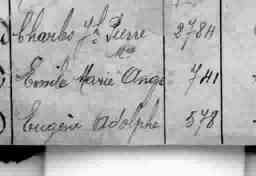 Charles Jh Pierre 2784
Mie
Emile Marie Ange 741
Eugène Adolphe 578